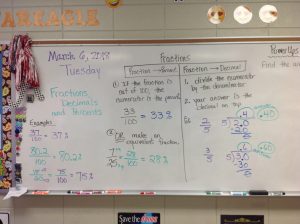 March 6, 2018
Tuesday
Fractions,
Decimals
and Percents
Examples:
37/100 = 37%
80.2/100 = 80.2%
75/100 = 75%
Fractions
Fraction → Percent
① If the fraction is
out of 100, the
numerator is the percent.
33/100 = 33%
② OR make an
equivalent fraction.
7/25 28/100 = 28%
Fraction → Decimal
1. divide the numerator
by the denominator
2. your answer is the
decimal on top
Ex: 2/5 5)2.0 .40
3/5 5)3.0 .60
PowerUps
Find the
Save the